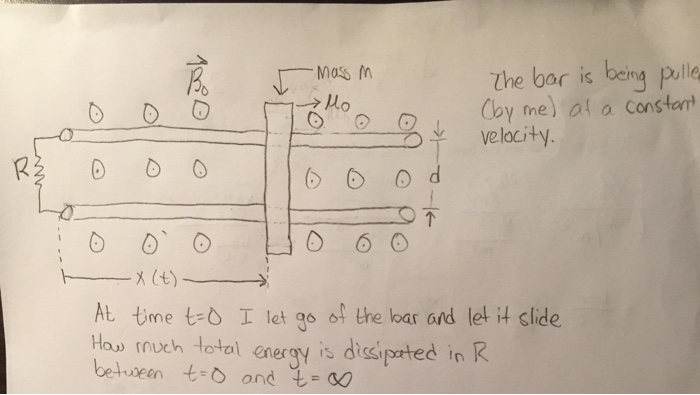 B₀
Mass m
μ₀
R
d
x(t)
The bar is being
(by me) at a constant
velocity.
At time t=0 I let go of the bar and let it slide
How much total energy is dissipated in R
between t=0 and t=∞